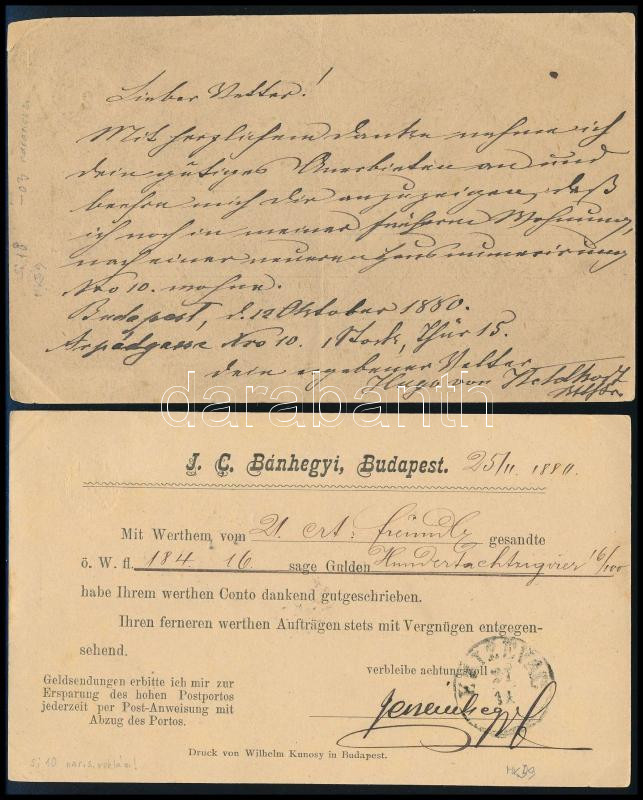 Lieber Vetter!
Mit herzlichem Danke nehme ich
dein gütiges Anerbieten an und
beehre mich dir anzuzeigen, daß
ich noch in meiner frühern Wohnung,
nach einer neueren Hausnumerirung
Nro 10. wohne.
Budapest, d. 12 Oktober 1880.
Arpádgasse Nro 10. 1 Stock, Thür 15.
dein ergebener Vetter
Hugo von
darabanth
J. C. Bánhegyi, Budapest. 25/11. 1880.
Mit Werthem vom 21. crt. freundlz gesandte
ö. W. fl. 184. 16. sage Gulden Hundertachtzigvier 16/100
habe Ihrem werthen Conto dankend gutgeschrieben.
Ihren ferneren werthen Aufträgen stets mit Vergnügen entgegen-
sehend.
verbleibe achtungsvoll
Geldsendungen erbitte ich mir zur
Ersparung des hohen Postportos
jederzeit per Post-Anweisung mit
Abzug des Portos.
Druck von Wilhelm Kunosy in Budapest.